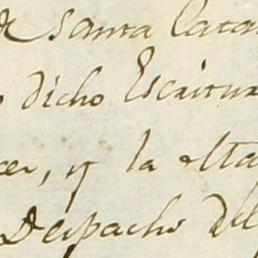 Santa Cata
dicho Escritur
cer, y la alta
Despacho del